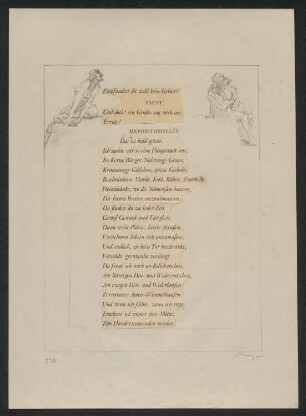 Empfindest du wohl kein Gelüst?
FAUST:
Und doch! ein Großes zog mich an.
Errate!
MEPHISTOPHELES:
Das ist bald getan.
Ich suchte mir so eine Hauptstadt aus,
Im Kerne Bürger-Nahrungs-Graus,
Krummenge Gäßchen, spitze Giebeln,
Beschränkten Markt, Kohl, Rüben, Zwiebeln,
Fleischbänke, wo die Schmeißen hausen,
Die fetten Braten anzuschmausen;
Da findest du zu jeder Zeit
Gewiß Gestank und Tätigkeit.
Dann weite Plätze, breite Straßen,
Vornehmen Schein sich anzumaßen;
Und endlich, wo kein Tor beschränkt,
Vorstädte grenzenlos verlängt.
Da freut' ich mich an Rollekutschen,
Am lärmigen Hin- und Widerrutschen,
Am ewigen Hin- und Widerlaufen
Zerstreuter Ameis-Wimmelhaufen.
Und wenn ich führe, wenn ich ritte,
Erschien' ich immer ihre Mitte,
Von Hunderttausenden verehrt.